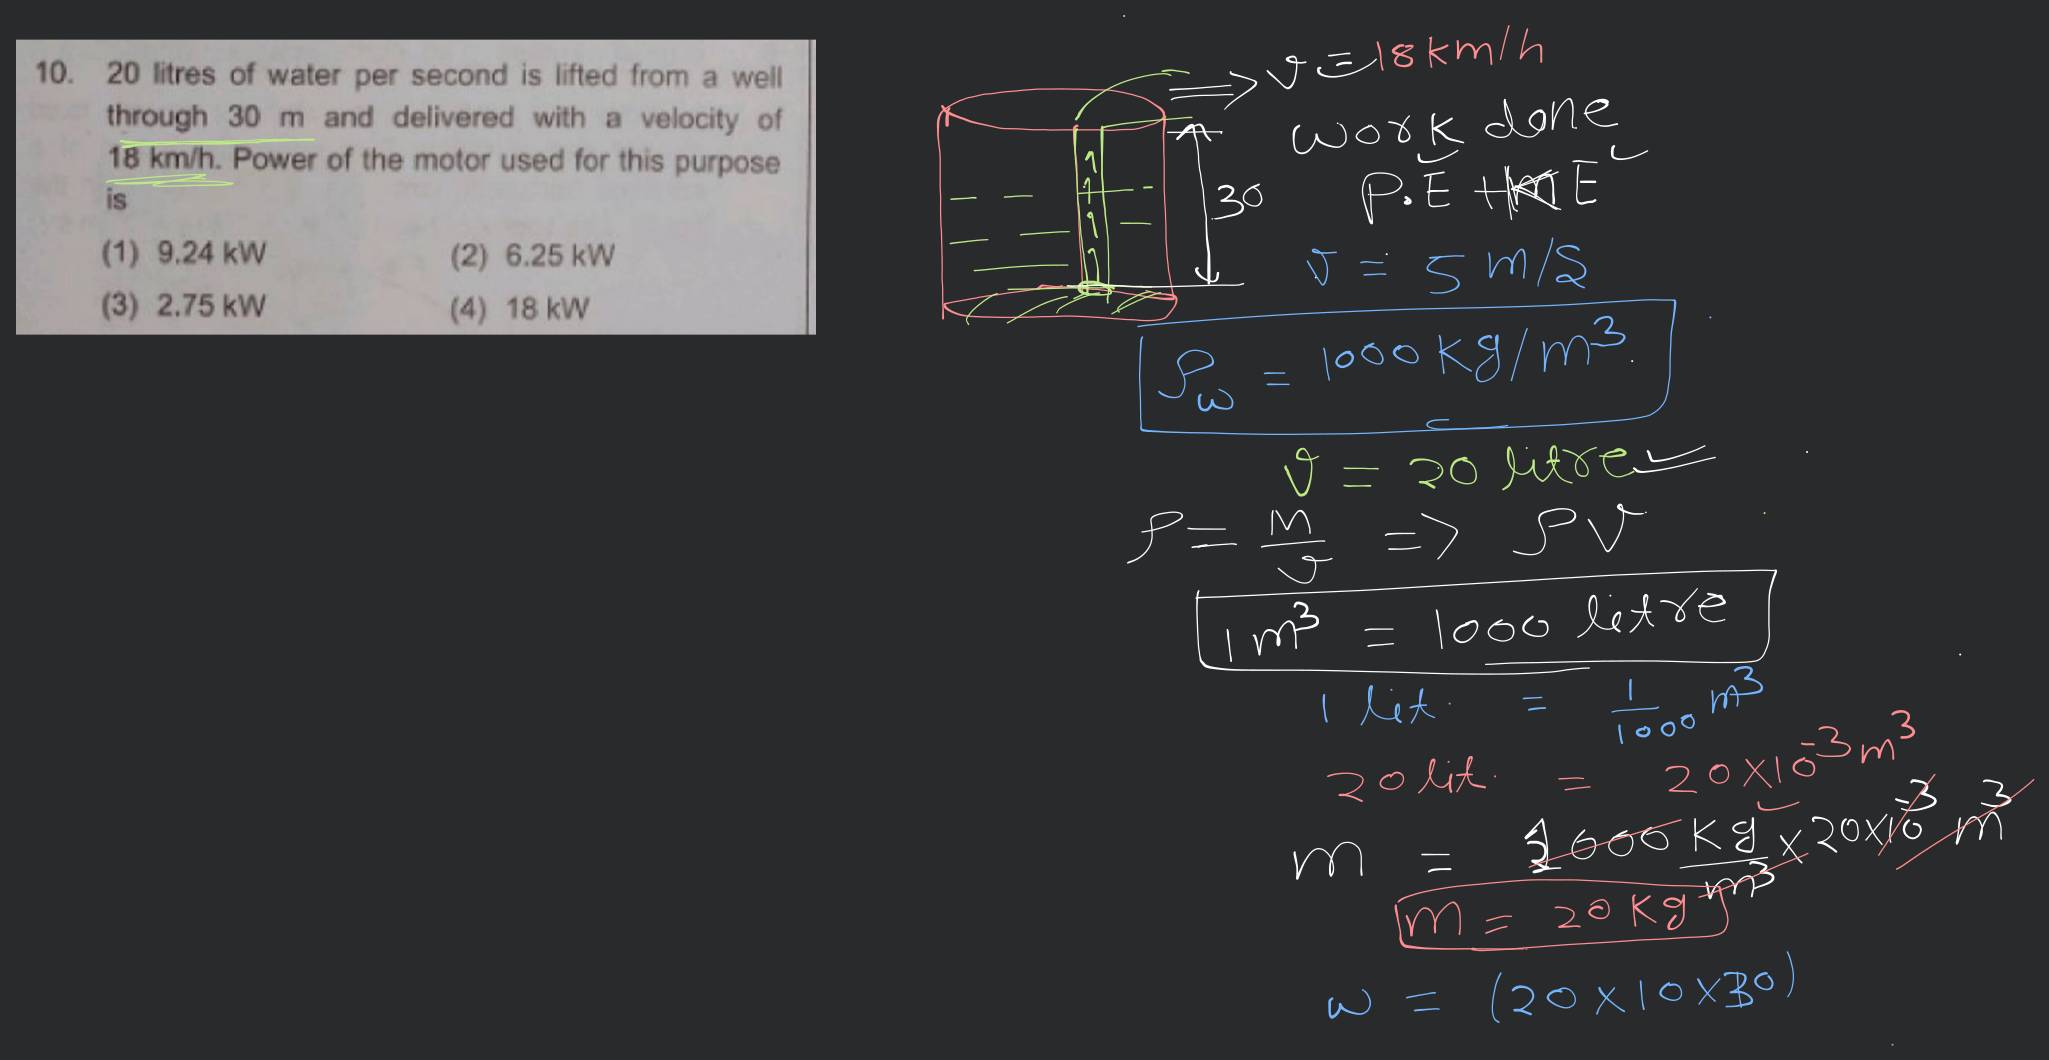 10. 20 litres of water per second is lifted from a well
through 30 m and delivered with a velocity of
18 km/h. Power of the motor used for this purpose
is
(1) 9.24 kW (2) 6.25 kW
(3) 2.75 kW (4) 18 kW
v = 18 km/h
work done
30
P.E + K E
v = 5 m/s
ρw = 1000 kg/m³
v = 20 litre
ρ = M/v => ρV
1 m³ = 1000 litre
1 lit. = 1/1000 m³
20 lit. = 20×10⁻³ m³
m = 1000 kg/m³ × 20×10⁻³ m³
m = 20 kg
w = (20×10×30)